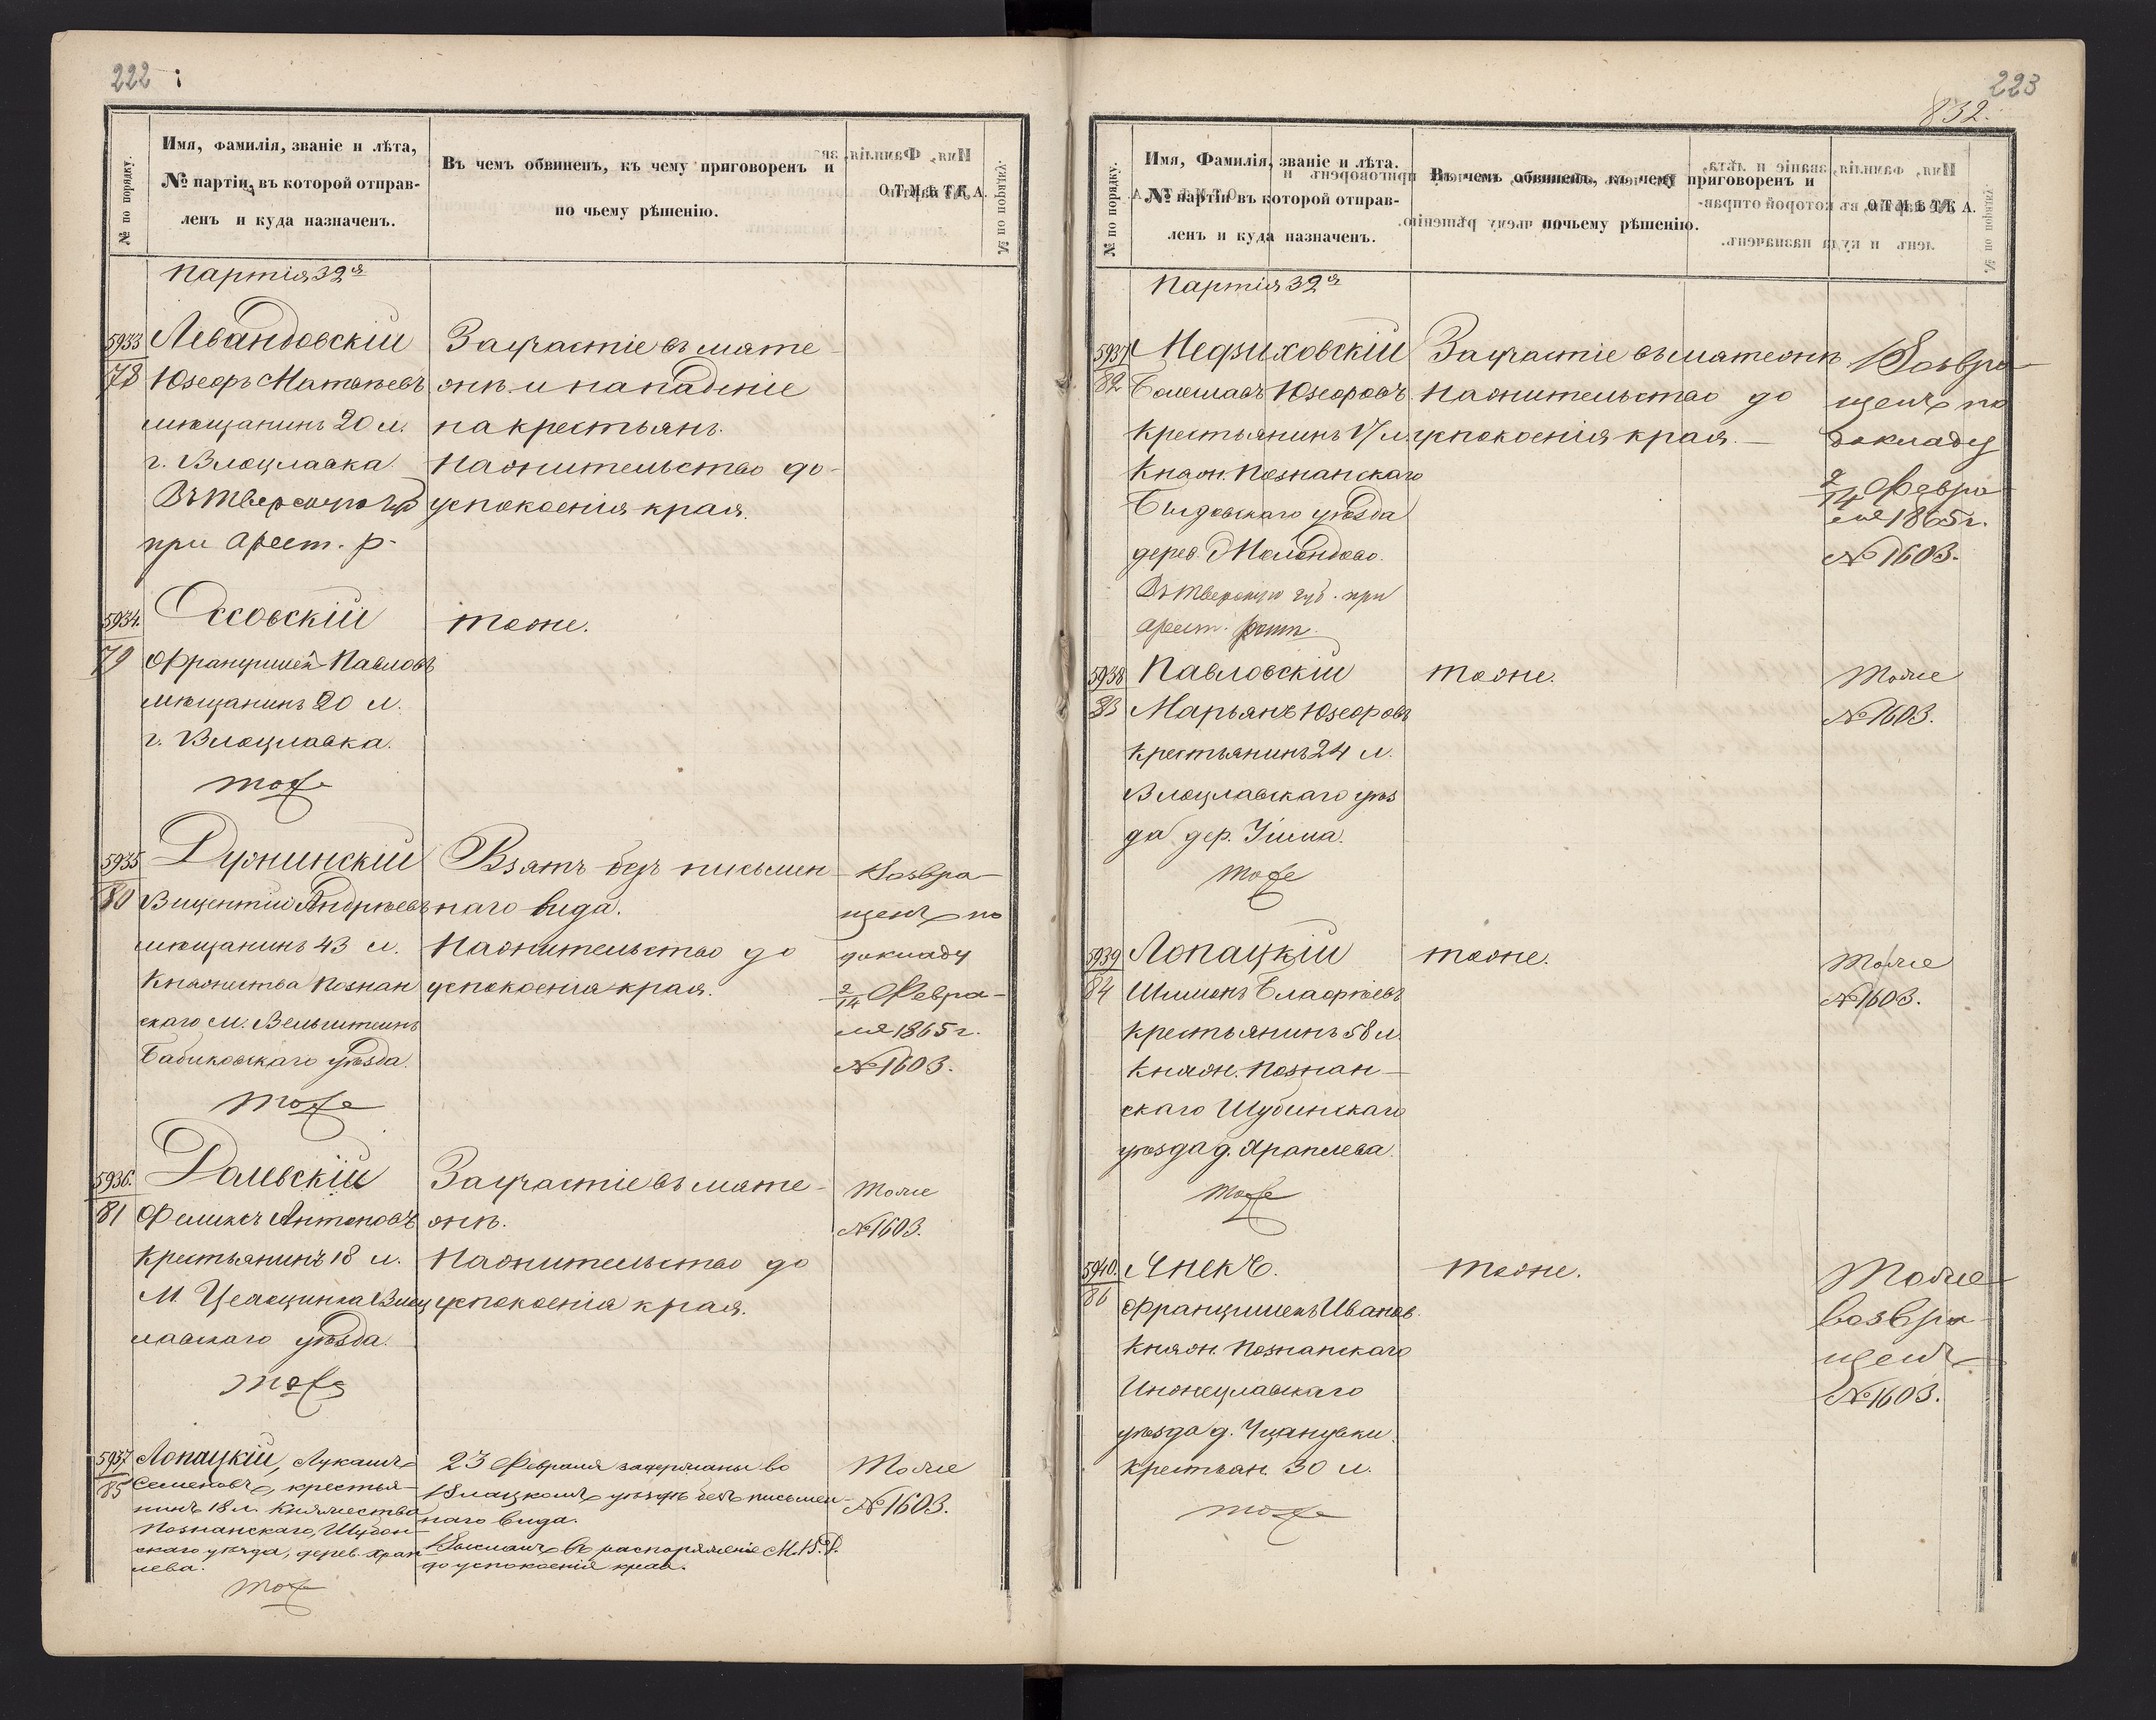 222
№ по порядку.
Имя, фамилія, званіе и лѣта,
№ партіи, въ которой отправ-
ленъ и куда назначенъ.
Въ чемъ обвиненъ, къ чему приговоренъ и
по чьему рѣшенію.
ОТМѢТКА.
Партія 32я
5933
78
Левандовскій
Юзефъ Матвѣевъ
мѣщанинъ 20 л.
г. Влоцлавка.
Въ Тверскую губ
при Арест. р-
За участіе въ мяте-
жѣ и нападеніе
на крестьянъ.
На жительство до-
успокоенія края.
5934.
79
Оссовскій
Францишекъ Павловъ
мѣщанинъ 20 л.
г. Влоцлавка.
тоже
тоже.
5935
80
Дужинскій
Вицентій Андрѣевъ
мѣщанинъ 43 л.
Княжества Познан
скаго м. Вельштейнъ
Бабиковскаго уѣзда.
тоже
Взятъ безъ письмен-
наго вида.
На жительство до
успокоенія края.
Возвра-
щенъ по
докладу
2/14 Февра-
ля 1865 г.
№ 1603.
5936.
81
Далевскій
Феликсъ Антоновъ
Крестьянинъ 18 л.
М. Влоц
лавскаго уѣзда.
тоже
За участіе въ мяте-
жѣ.
На жительство до
успокоенія края.
Тоже
№ 1603.
5937
85
Лопацкій, Лукашъ
Семеновъ, крестья-
нинъ 18 л. Княжества
Познанскаго, Шубон-
скаго уѣзда, дерев. Храп
лева.
тоже
23 Февраля задержаны во
Влацкомъ уѣздѣ безъ письмен-
наго вида.
Высланъ въ распоряженіе М.В.Д.
до успокоенія края.
Тоже
№ 1603.
223
832.
№ по порядку.
Имя, Фамилія, званіе и лѣта.
№ партіи въ которой отправ-
ленъ и куда назначенъ.
Въ чемъ обвиненъ, къ чему приговоренъ и
по чьему рѣшенію.
ОТМѢТКА.
Партія 32я
5937
82
Болеславъ Юзефовъ
Крестьянинъ л.
Княж. Познанскаго
уѣзда
дерев.
Въ Тверскую губ. при
Арест. ротѣ.
За участіе въ мятежѣ
На жительство до
успокоенія края.—
Возвра-
щенъ по
докладу
2/14 Февра-
ля 1865 г.
№ 1603.
5938
83
Павловскій
Марьянъ Юзефовъ
Крестьянинъ 24 л.
Влоцлавскаго уѣз
да дер.
тоже
тоже.
Тоже
№ 1603.
5939
84
Лопацкій
Шимонъ
Крестьянинъ 58 л.
Княж. Познан-
скаго Шубинскаго
уѣзда д. Храплева.
тоже
тоже.
Тоже
№ 1603.
5940.
86
Янекъ.
Францишекъ Ивановъ.
Княж. Познанскаго
Иноноцлавскаго
уѣзда д.
Крестьян. 30 л.
тоже
тоже.
Тоже
возвра-
щенъ
№ 1603.